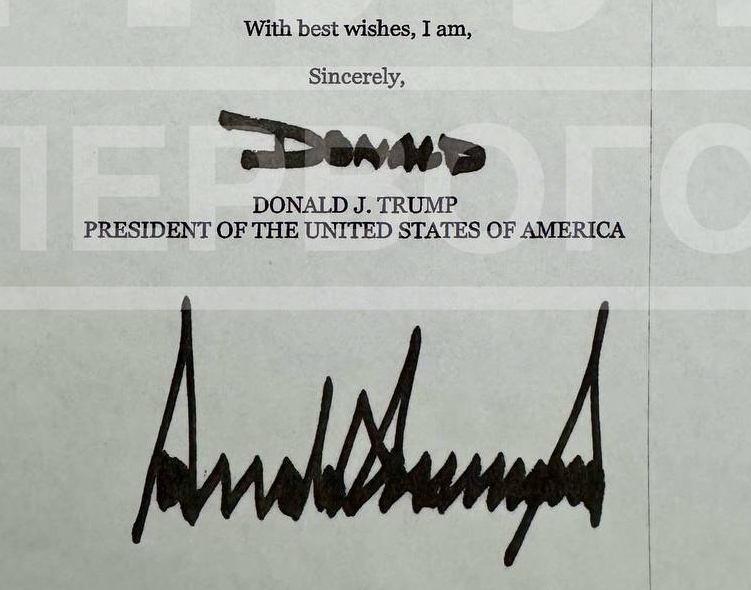 With best wishes, I am,
Sincerely,
DONALD
DONALD J. TRUMP
PRESIDENT OF THE UNITED STATES OF AMERICA
ПЕРВОГО